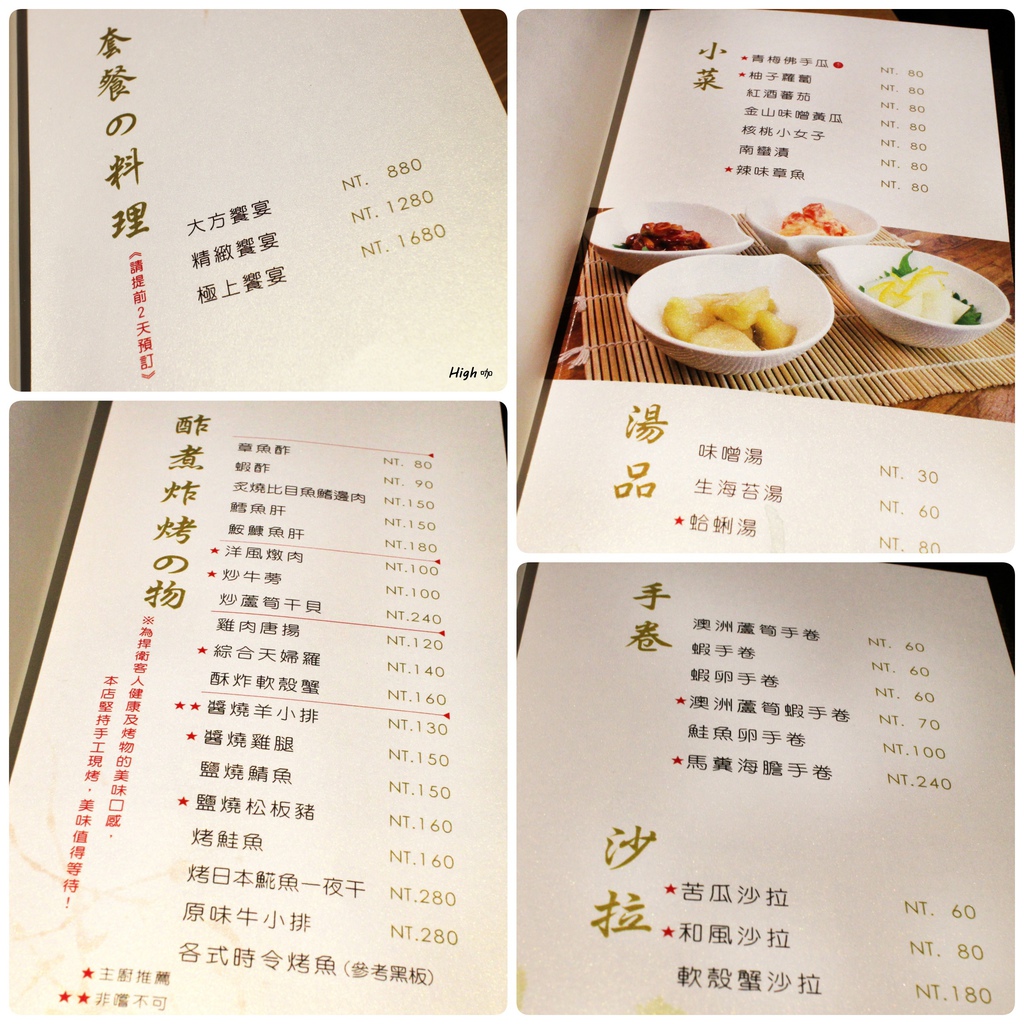 套餐の料理
《請提前2天預訂》
大方饗宴 NT. 880
精緻饗宴 NT. 1280
極上饗宴 NT. 1680
High咖
小菜
★青梅佛手瓜 NT. 80
★柚子蘿蔔 NT. 80
紅酒蕃茄 NT. 80
金山味噌黃瓜 NT. 80
核桃小女子 NT. 80
南蠻漬 NT. 80
★辣味章魚 NT. 80
湯品
味噌湯 NT. 30
生海苔湯 NT. 60
★蛤蜊湯 NT. 80
酢煮炸烤の物
※為捍衛客人健康及烤物的美味口感，
本店堅持手工現烤，美味值得等待！
章魚酢 NT. 80
蝦酢 NT. 90
炙燒比目魚鰭邊肉 NT.150
鱈魚肝 NT.150
鮟鱇魚肝 NT.180
★洋風燉肉 NT.100
★炒牛蒡 NT.100
炒蘆筍干貝 NT.240
雞肉唐揚 NT.120
★綜合天婦羅 NT.140
酥炸軟殼蟹 NT.160
★★醬燒羊小排 NT.130
★醬燒雞腿 NT.150
鹽燒鯖魚 NT.150
★鹽燒松板豬 NT.160
烤鮭魚 NT.160
烤日本䱛魚一夜干 NT.280
原味牛小排 NT.280
各式時令烤魚(參考黑板)
★主廚推薦
★★非嚐不可
手卷
澳洲蘆筍手卷 NT. 60
蝦手卷 NT. 60
蝦卵手卷 NT. 60
★澳洲蘆筍蝦手卷 NT. 70
鮭魚卵手卷 NT.100
★馬糞海膽手卷 NT.240
沙拉
★苦瓜沙拉 NT. 60
★和風沙拉 NT. 80
軟殼蟹沙拉 NT.180